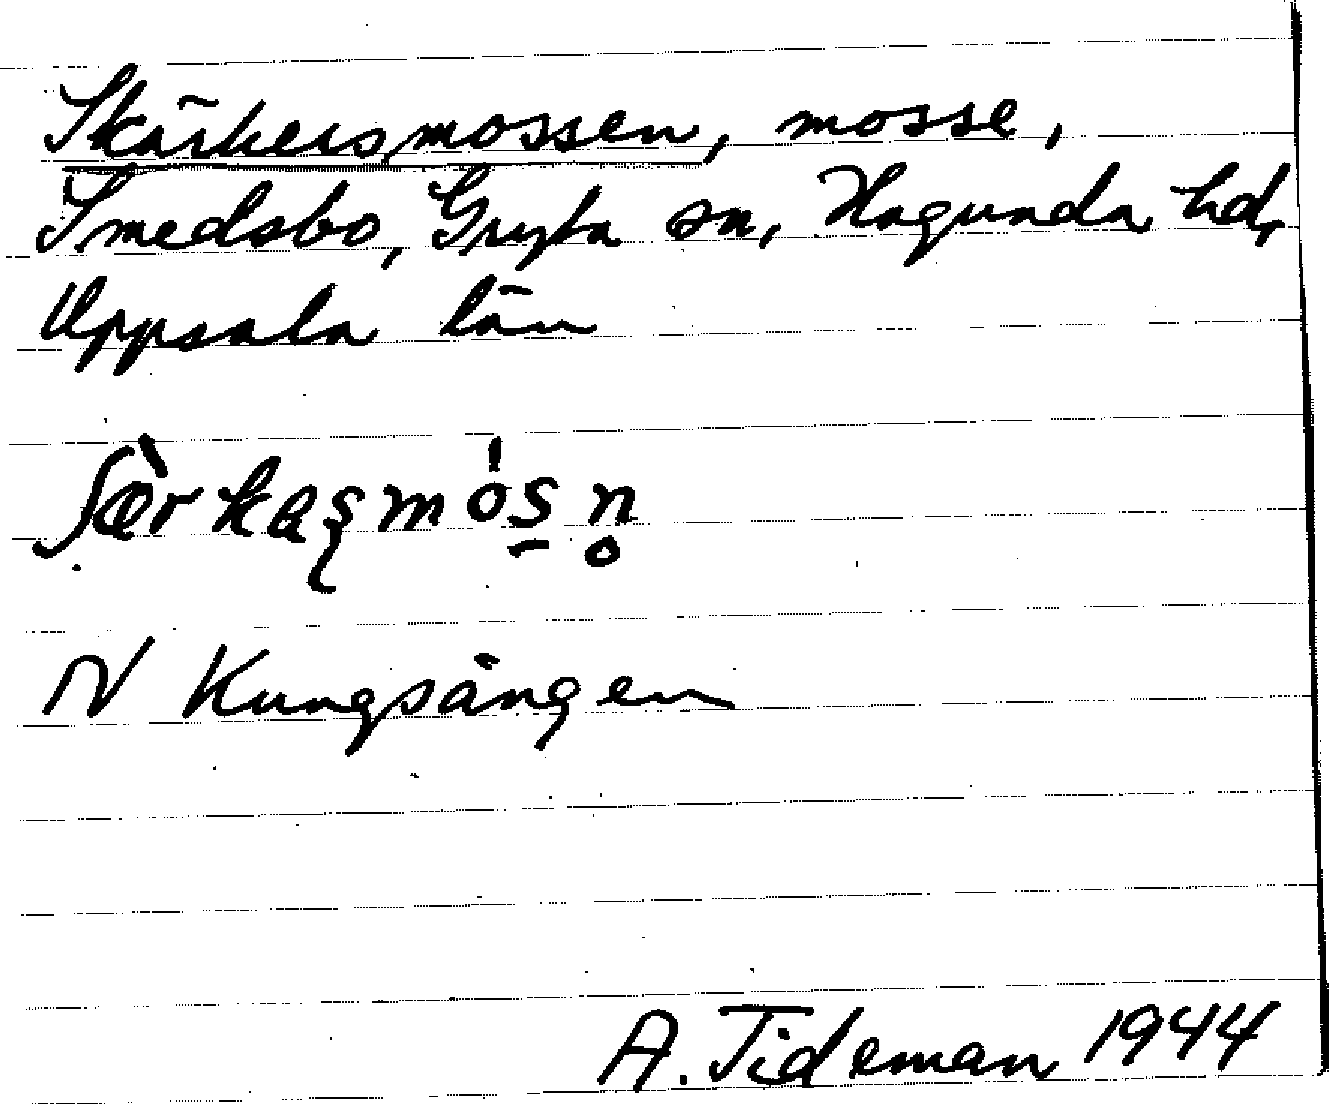 Skärkersmossen, mosse,
Smedsbo, Gryta sn, Hagunda hd,
Uppsala län
ʃæ̀rkas̨mós̠n̥
N Kungsängen
A. Tideman 1944